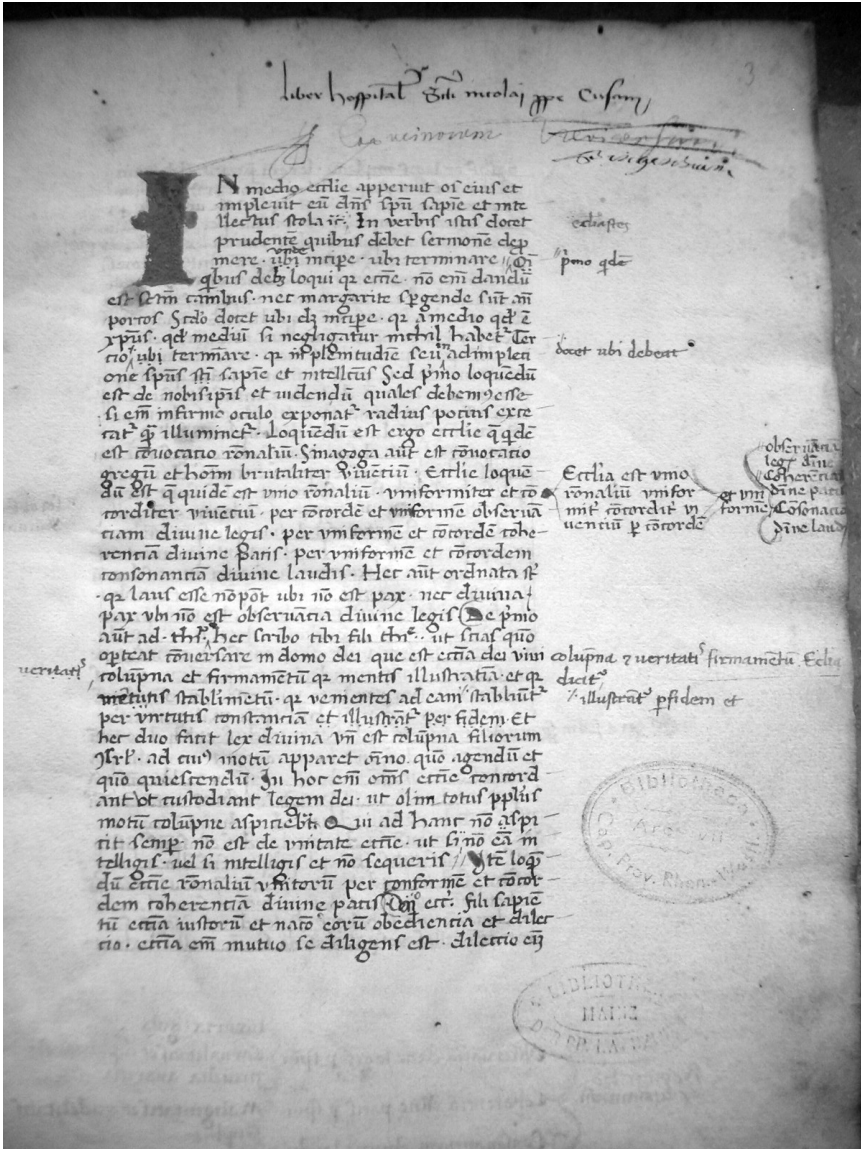 3
liber hospital' Sti nicolai ppe Cusam
IN medio ecclie apperuit os eius et
implevit eū dn̄s spū sapiē et inte
llectus stola ic̄. In verbis istis docet
prudentē quibus debet sermonē dep̄
mere · ubi incipe · ubi terminare
unde
qibus deb loqui qr eccīe · nō em̄ dandū
est sctm̄ canibus · nec margarite sp̄gende sūt an̄
porcos Scdo docet ubi dz incipe · qr a medio qd ē
xp̄us · qd mediū si negligatur nichil habet Ter
cio ubi termīare · qr in plenitudīe seu in adimpleti
one spūs sti sapīe et intellcūs Sed pīmo loquēdū
est de nobisip̄is et videndū quales debem9 esse
si em̄ infirmo oculo exponat radius pocius exce
cat qm̄ illuminet · Loquēdū est ergo ecclie q̄ qdē
est cōvocatio rōnaliū · Sinagoga aūt est cōvocatio
gregū et hoīm brutaliter viventiū · Ecclie loquē
dū est q quidē est vnio rōnaliū · vniformiter et cō
corditer viventiū · per concordē et vniformē observā
ciam divine legis · per vniformē et cōcordē cohe
renciā divine pacis · per vniformē et cōcordem
consonanciā divine laudis · Hec aūt ordnata st
· qr laus esse nō pōt ubi nō est pax · nec divina
pax vbi nō est observācia divine legis De p̄mo
aūt ad · th · hec scribo tibi fili th · ut scias quō
oporteat cōversare in domo dei que est eccīa dei vivi
colūpna et firmamētū qr mentis illustratīa et qr
virtutis stabilimētū · qr venientes ad eam stabiliūt
per virtutis constanciā et illustrāt per fidem · Et
hec duo facit lex divina vn̄ est colūpna filiorum
Isrl · ad cui9 motū apparet oīno quo agendū et
quō quiescendū · In hoc em̄ om̄s eccīe concord
ant ut custodiant legem dei · ut olim totus pplus
motū colūpne aspiciebt Qui ad hanc nō aspi
cit semp nō est de unitate eccīe · ut si nō eā in
telligis · vel si intelligis et nō sequeris Itē loq
dū eccīe rōnaliū vnitorū per conformē et cōcor
dem coherenciā divine pacis ecc. fili sapiē
tū eccīa iustorū et nacō eorū obediencia et dilec
cio · eccīa em̄ mutuo se diligens est · dileccio
ecclīastes
pīmo qdē
docet ubi debeat
Eccīia est vnio
rōnaliū vnifor
mit cōcordit vi
venciū p cōcordē
et vni
formē
observācia
leg dīne
Coherēcia
dīne pacis
Cōsonācia
dīne laud
veritati
colūpna et veritati firmamētū Eccīia
dicit
illustrāt p fidem et
Bibliotheca
Archivii
Cap. Prov. Rhen.-Westf.
BIBLIOTHECA
MAINZ